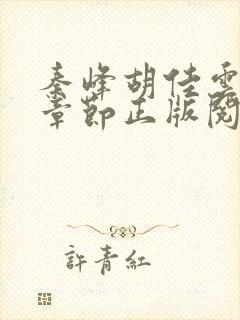 秦峰胡佳雲
章節正版閱
許青紅